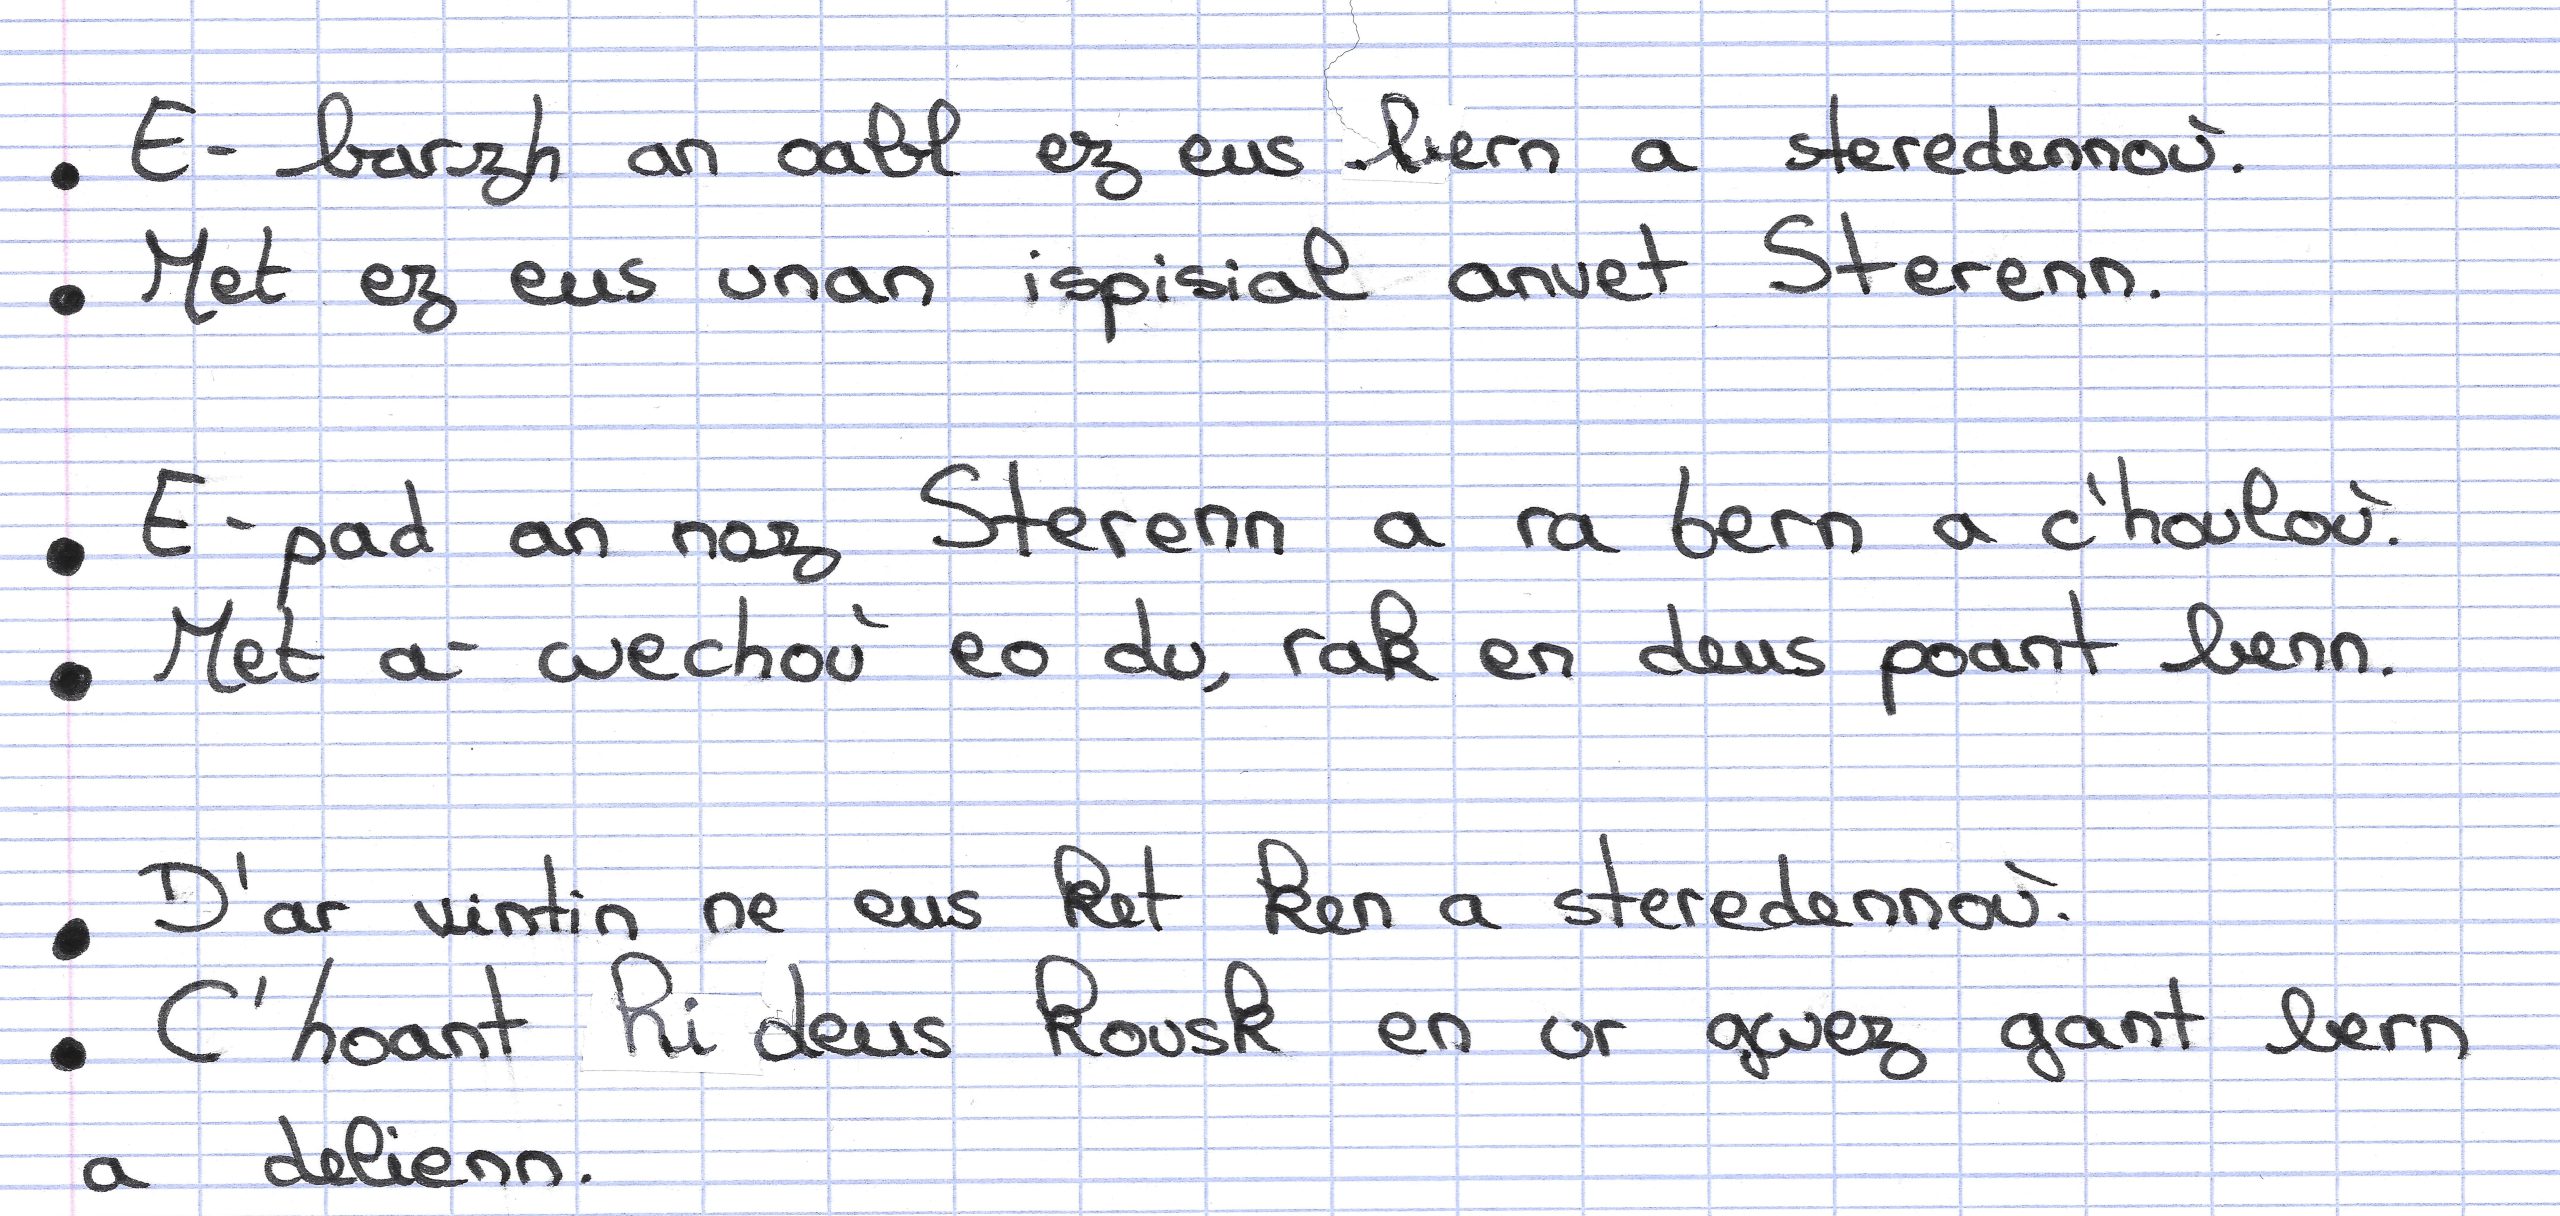 • E-barzh an oabl ez eus bern a steredennoù.
• Met ez eus unan ispisial anvet Sterenn.
• E-pad an noz Sterenn a ra bern a c'houloù.
• Met a-wechoù eo du, rak en deus poant benn.
• D'ar vintin ne eus ket ken a steredennoù.
• C'hoant hi deus kousk en ur gwez gant bern
a delienn.